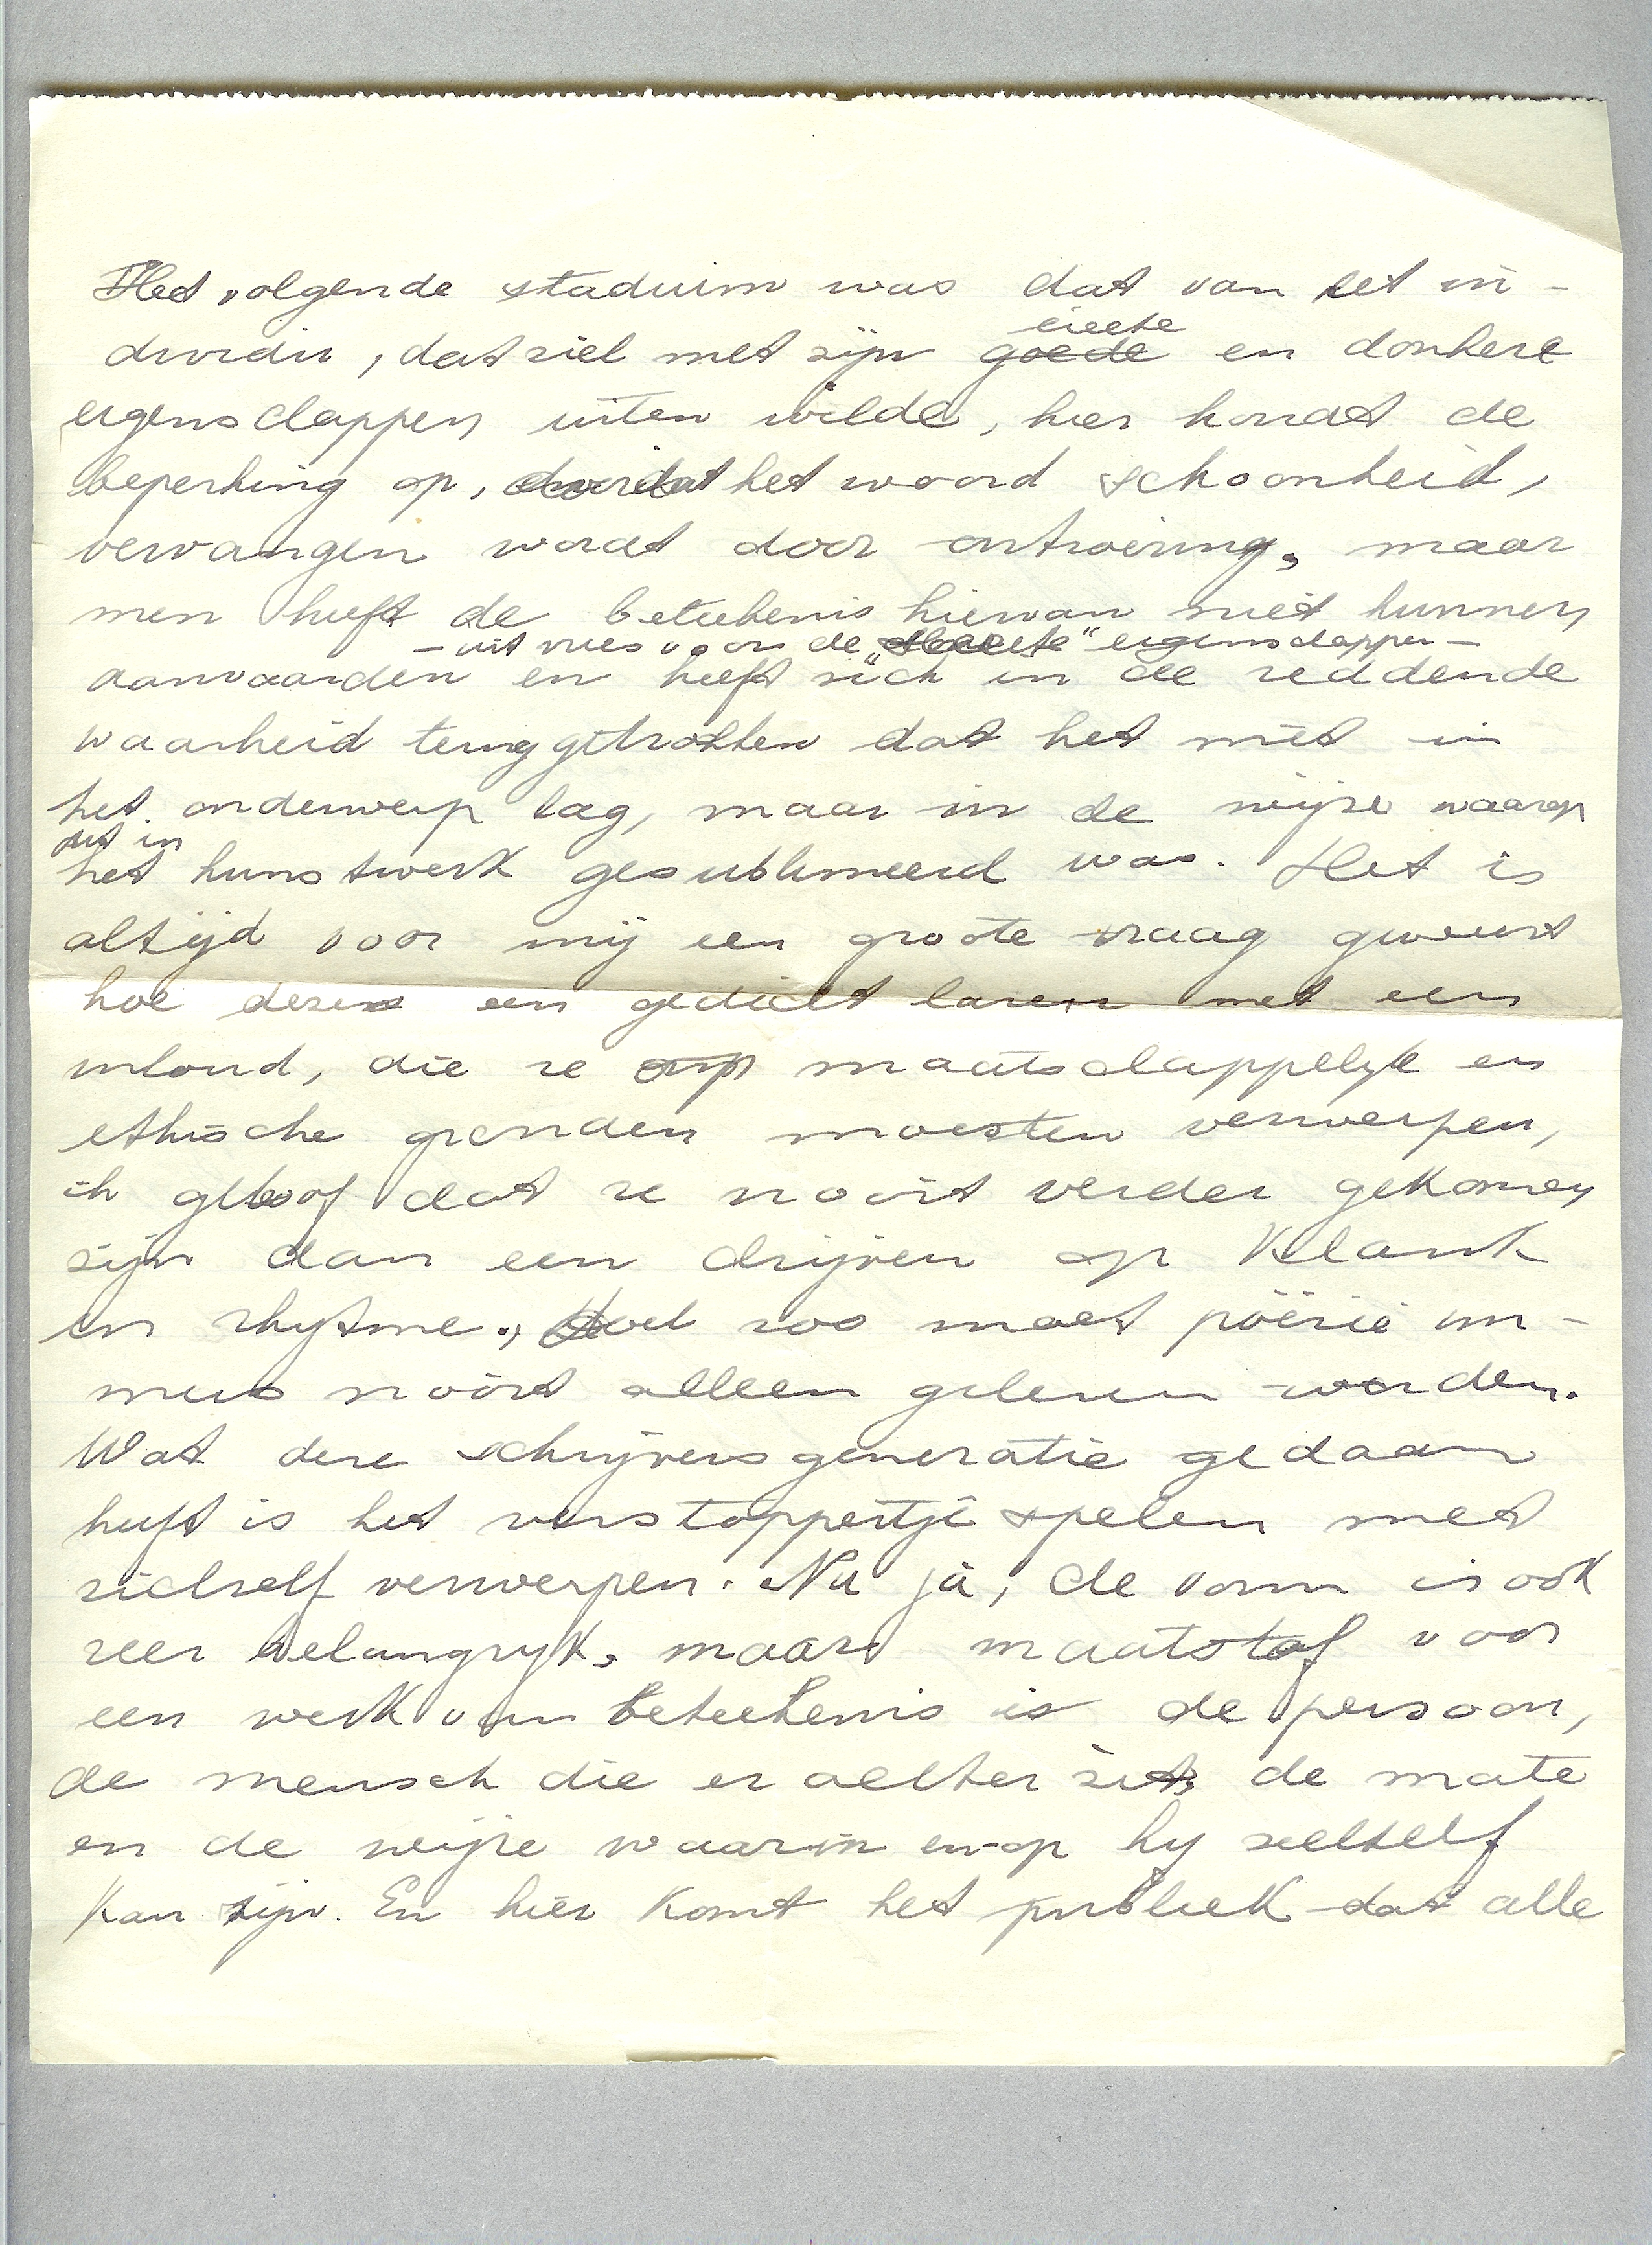 Het volgende stadium was dat van het in-
lichte
dividu, dat ziel met zijn goede en donkere
eigenschappen uiten wilde, hier houdt de
beperking op, doordat het woord schoonheid,
vervangen wordt door ontroering, maar
men heeft de beteekenis hiervan niet kunnen
- uit vrees voor de „slechte" eigenschappen -
aanvaarden en heeft zich in de reddende
waarheid teruggetrokken dat het niet in
het onderwerp lag, maar in de wijze waarop
dit in
het kunstwerk gesublimeerd was. Het is
altijd voor mij een groote vraag geweest
hoe deze een gedicht lazen met een
inhoud, die ze op maatschappelijke en
ethische gronden moesten verwerpen,
ik geloof dat ze nooit verder gekomen
zijn dan een drijven op klank
en rhytme., zoo moet poëzie im-
mers nooit alleen gelezen worden.
Wat deze schrijversgeneratie gedaan
heeft is het verstoppertje spelen met
zichzelf verwerpen. Nu ja, de vorm is ook
zeer belangrijk, maar maatstaf voor
een werk van beteekenis is de persoon,
de mensch die er achter zit, de mate
en de wijze waarin en op hij zichzelf
kan zijn. En hier komt het publiek dat alle